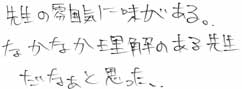 先生の雰囲気に味がある。
なかなか理解のある先生
だなぁと思った。